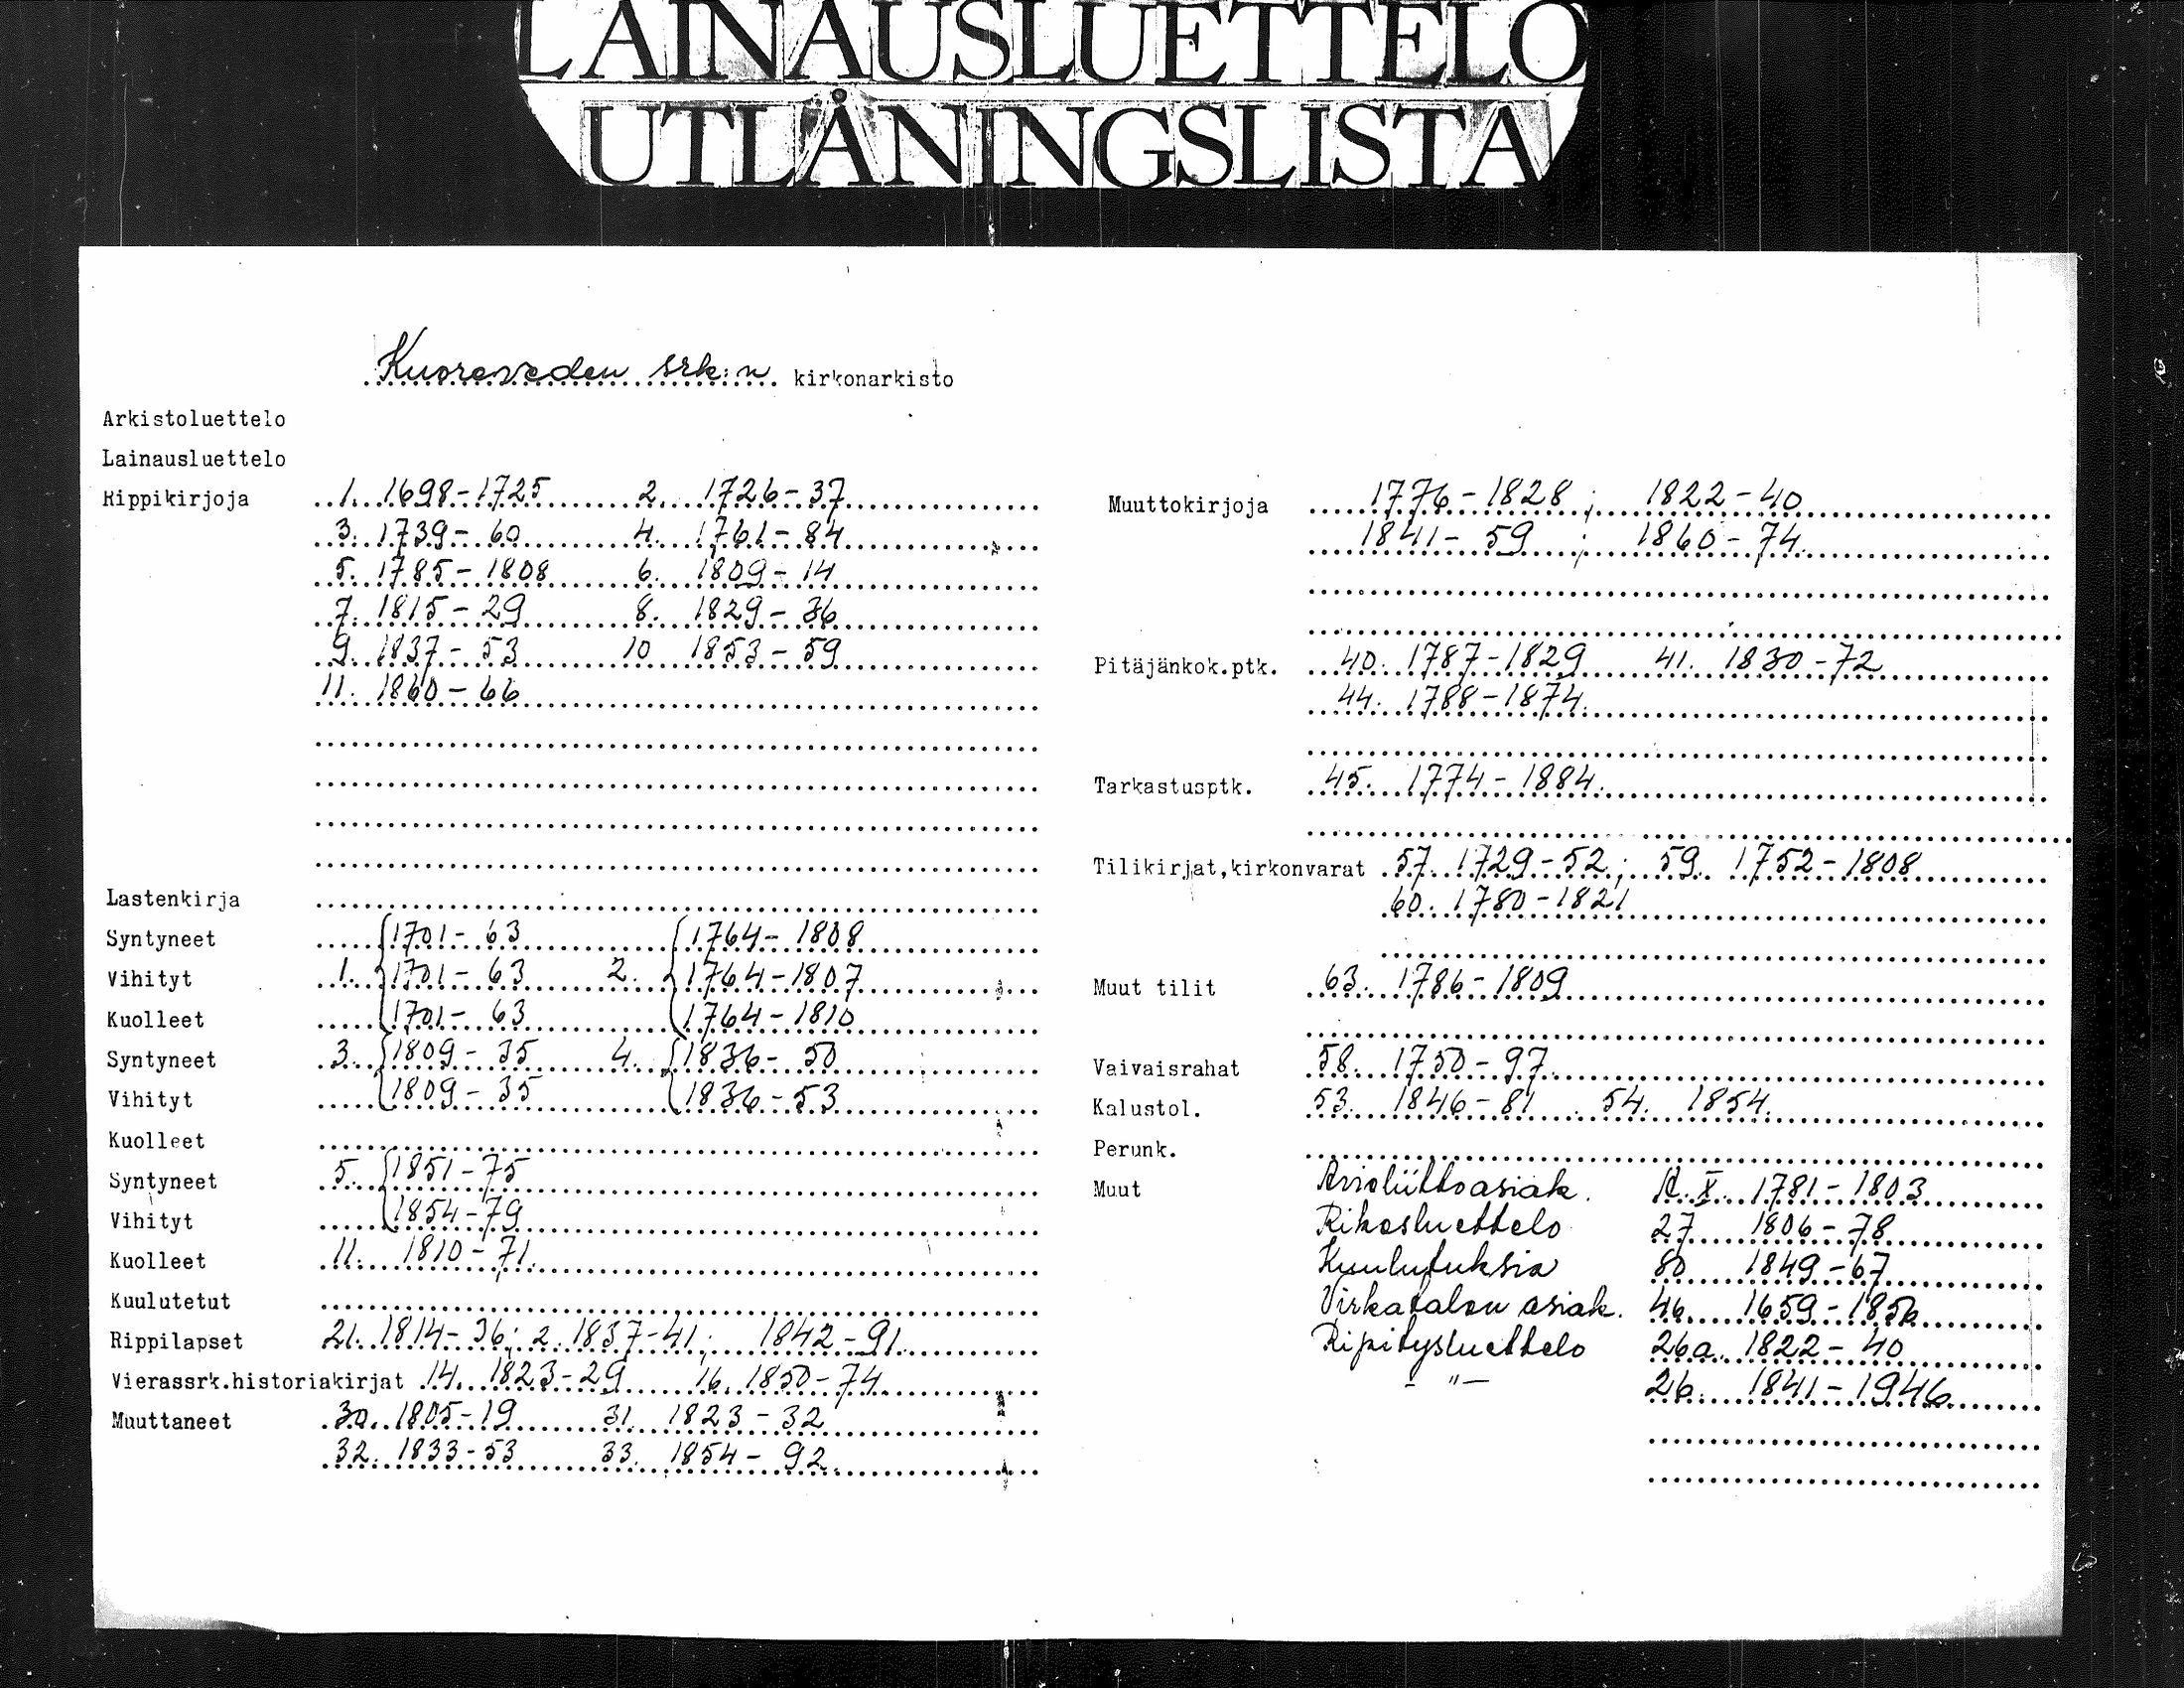 LAINAUSLUETTELO
UTLÅNINGSLISTA
Kuoreveden srk:n kirkonarkisto
Arkistoluettelo
Lainausluettelo
Rippikirjoja 1. 1698-1725 2. 1726-37
3. 1739-60 4. 1761-84
5. 1785-1808 6. 1809-14
7. 1815-29 8. 1829-36
9. 1837-53 10 1853-59
11. 1860-66
Lastenkirja
Syntyneet 1701-63 1764-1808
Vihityt 1. 1701-63 2. 1764-1807
Kuolleet 1701-63 1764-1810
Syntyneet 3. 1809-35 4. 1836-50
Vihityt 1809-35 1836-53
Kuolleet
Syntyneet 5. 1851-75
Vihityt 1854-79
Kuolleet 11. 1810-71.
Kuulutetut
Rippilapset 21. 1814-36; 2. 1837-41; 1842-91.
Vierassrk.historiakirjat 14. 1823-29 16. 1850-74
Muuttaneet 30. 1805-19 31. 1823-32
32. 1833-53 33. 1854-92.
Muuttokirjoja 1776-1828; 1822-40
1841-59; 1860-74.
Pitäjänkok.ptk. 40. 1787-1829 41. 1830-72
44. 1788-1874.
Tarkastusptk. 45. 1774-1884.
Tilikirjat,kirkonvarat 57. 1729-52; 59. 1752-1808
60. 1780-1821
Muut tilit 63. 1786-1809
Vaivaisrahat 58. 1750-97.
Kalustol. 53. 1846-81 54. 1854.
Perunk.
Muut Avioliittoasiak. A. X. 1781-1803
Rikosluettelo 27 1806-78
Kuulutuksia 80 1849-67
Virkatalon asiak. 46. 1659-1856
Ripitysluettelo 26a. 1822-40
- " - 26. 1841-1946